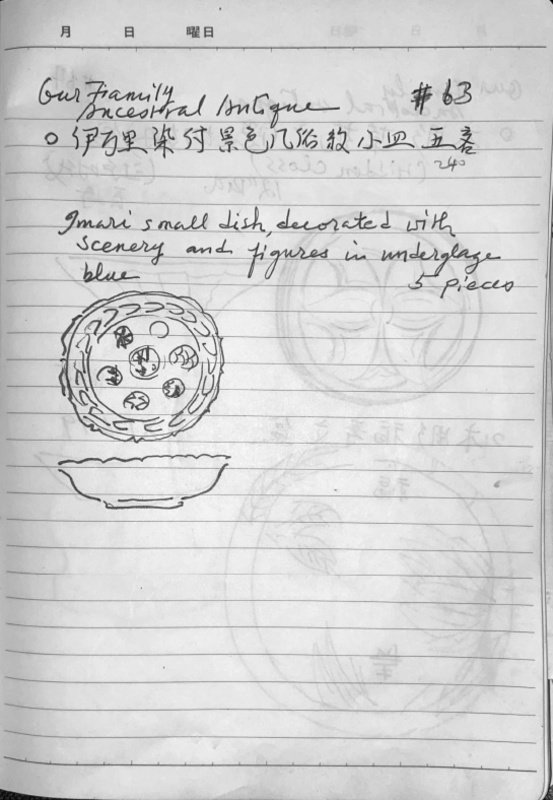 月 日 曜日
Our Family
Ancestral Antique # 63
○ 伊万里染付景色風俗紋小皿 五客
240
Imari small dish, decorated with
scenery and figures in underglaze
blue 5 pieces